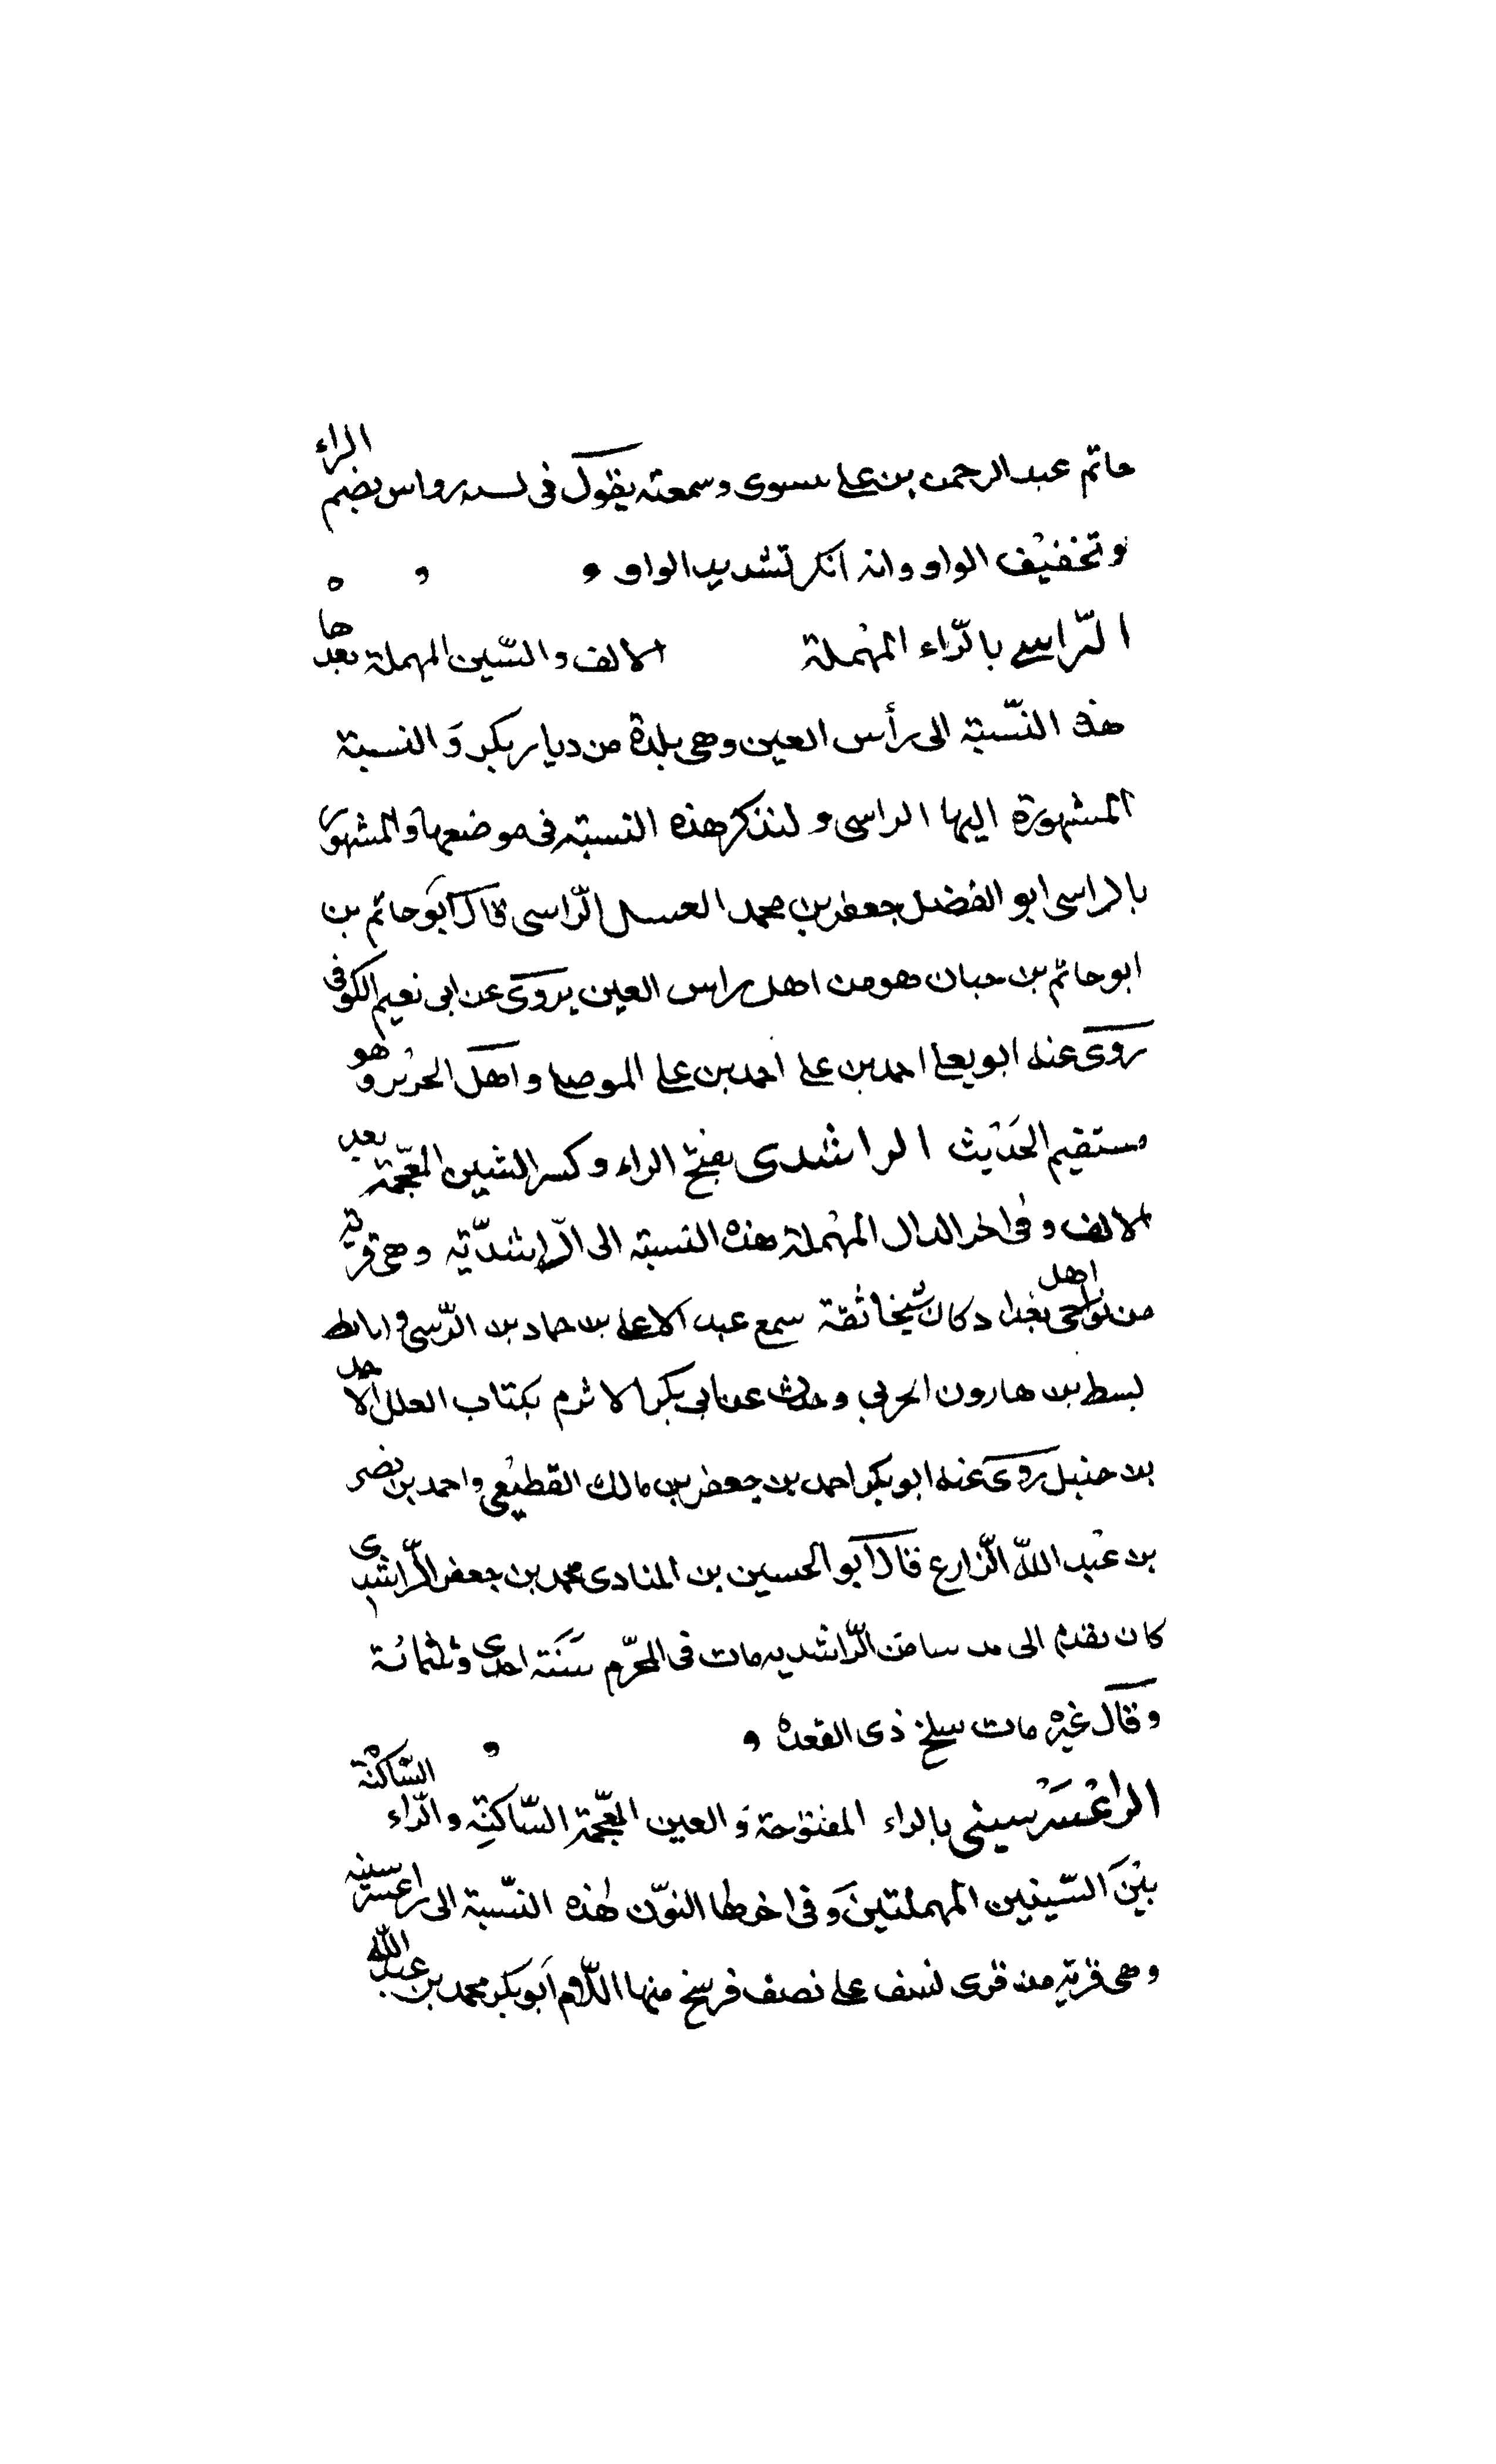 حاتم عبد الرحمن بن علي سوى وسمعته يقول في رواس بضم الراء
وتخفيف الواو وانه انكر تشديد الواو
الرّاسي بالرّاء المهملة الالف والسّين المهملة بعدها
هذه النّسبة الى رأس العين وهي بلدة من ديار بكر وَالنسبة
المشهورة اليها الراسى ولنذكر هذه النسبة في موضعها والمشهور
بالراسى ابو الفضل جعفر بن محمد الرّاسى قال ابو حاتم بن
ابو حاتم بن حبان هو من اهل راس العين يروى عن ابى نعيم الكوفى
روى عنه ابو يعلى احمد بن على احمد بن على الموصلى واهل وهو
مستقيم الحديث الراشدى بفتح الراء وكسر الشين المعجمة بعد
الالف وفى اخر الدال المهملة هذه النسبة الى الرّاشديّة وهى قرية
من نواحى اهل بغداد كان شيخا ثقة سمع عبد الاعلى بن حماد بن
بن هارون الحربى وحدث عن ابى بكر الاثرم بكتاب العلل
بن حنبل روى عنه ابو بكر احمد بن جعفر بن مالك القطيعى واحمد بن نصر
بن عبد اللّه الزّارع قال ابو الحسين بن المنادى محمد بن جعفر الرّاشدى
كان يقدم الى من الرّاشديه مات فى المحرّم سَنَة احدى وثلثمائة
وقال غيره مات سلخ ذى القعده
الراغسرسينى بالراء المفتوحة وَالعين المعجمة السّاكنِة والرّاء السّاكنة
بيْنَ السّينين المهملتين وَفى اخرها النوّن هذه النّسبة الى راغسرسينه
وهى قرية من قرى نسف على نصف فرسخ منها ابو بكر محمد بن عبد الله